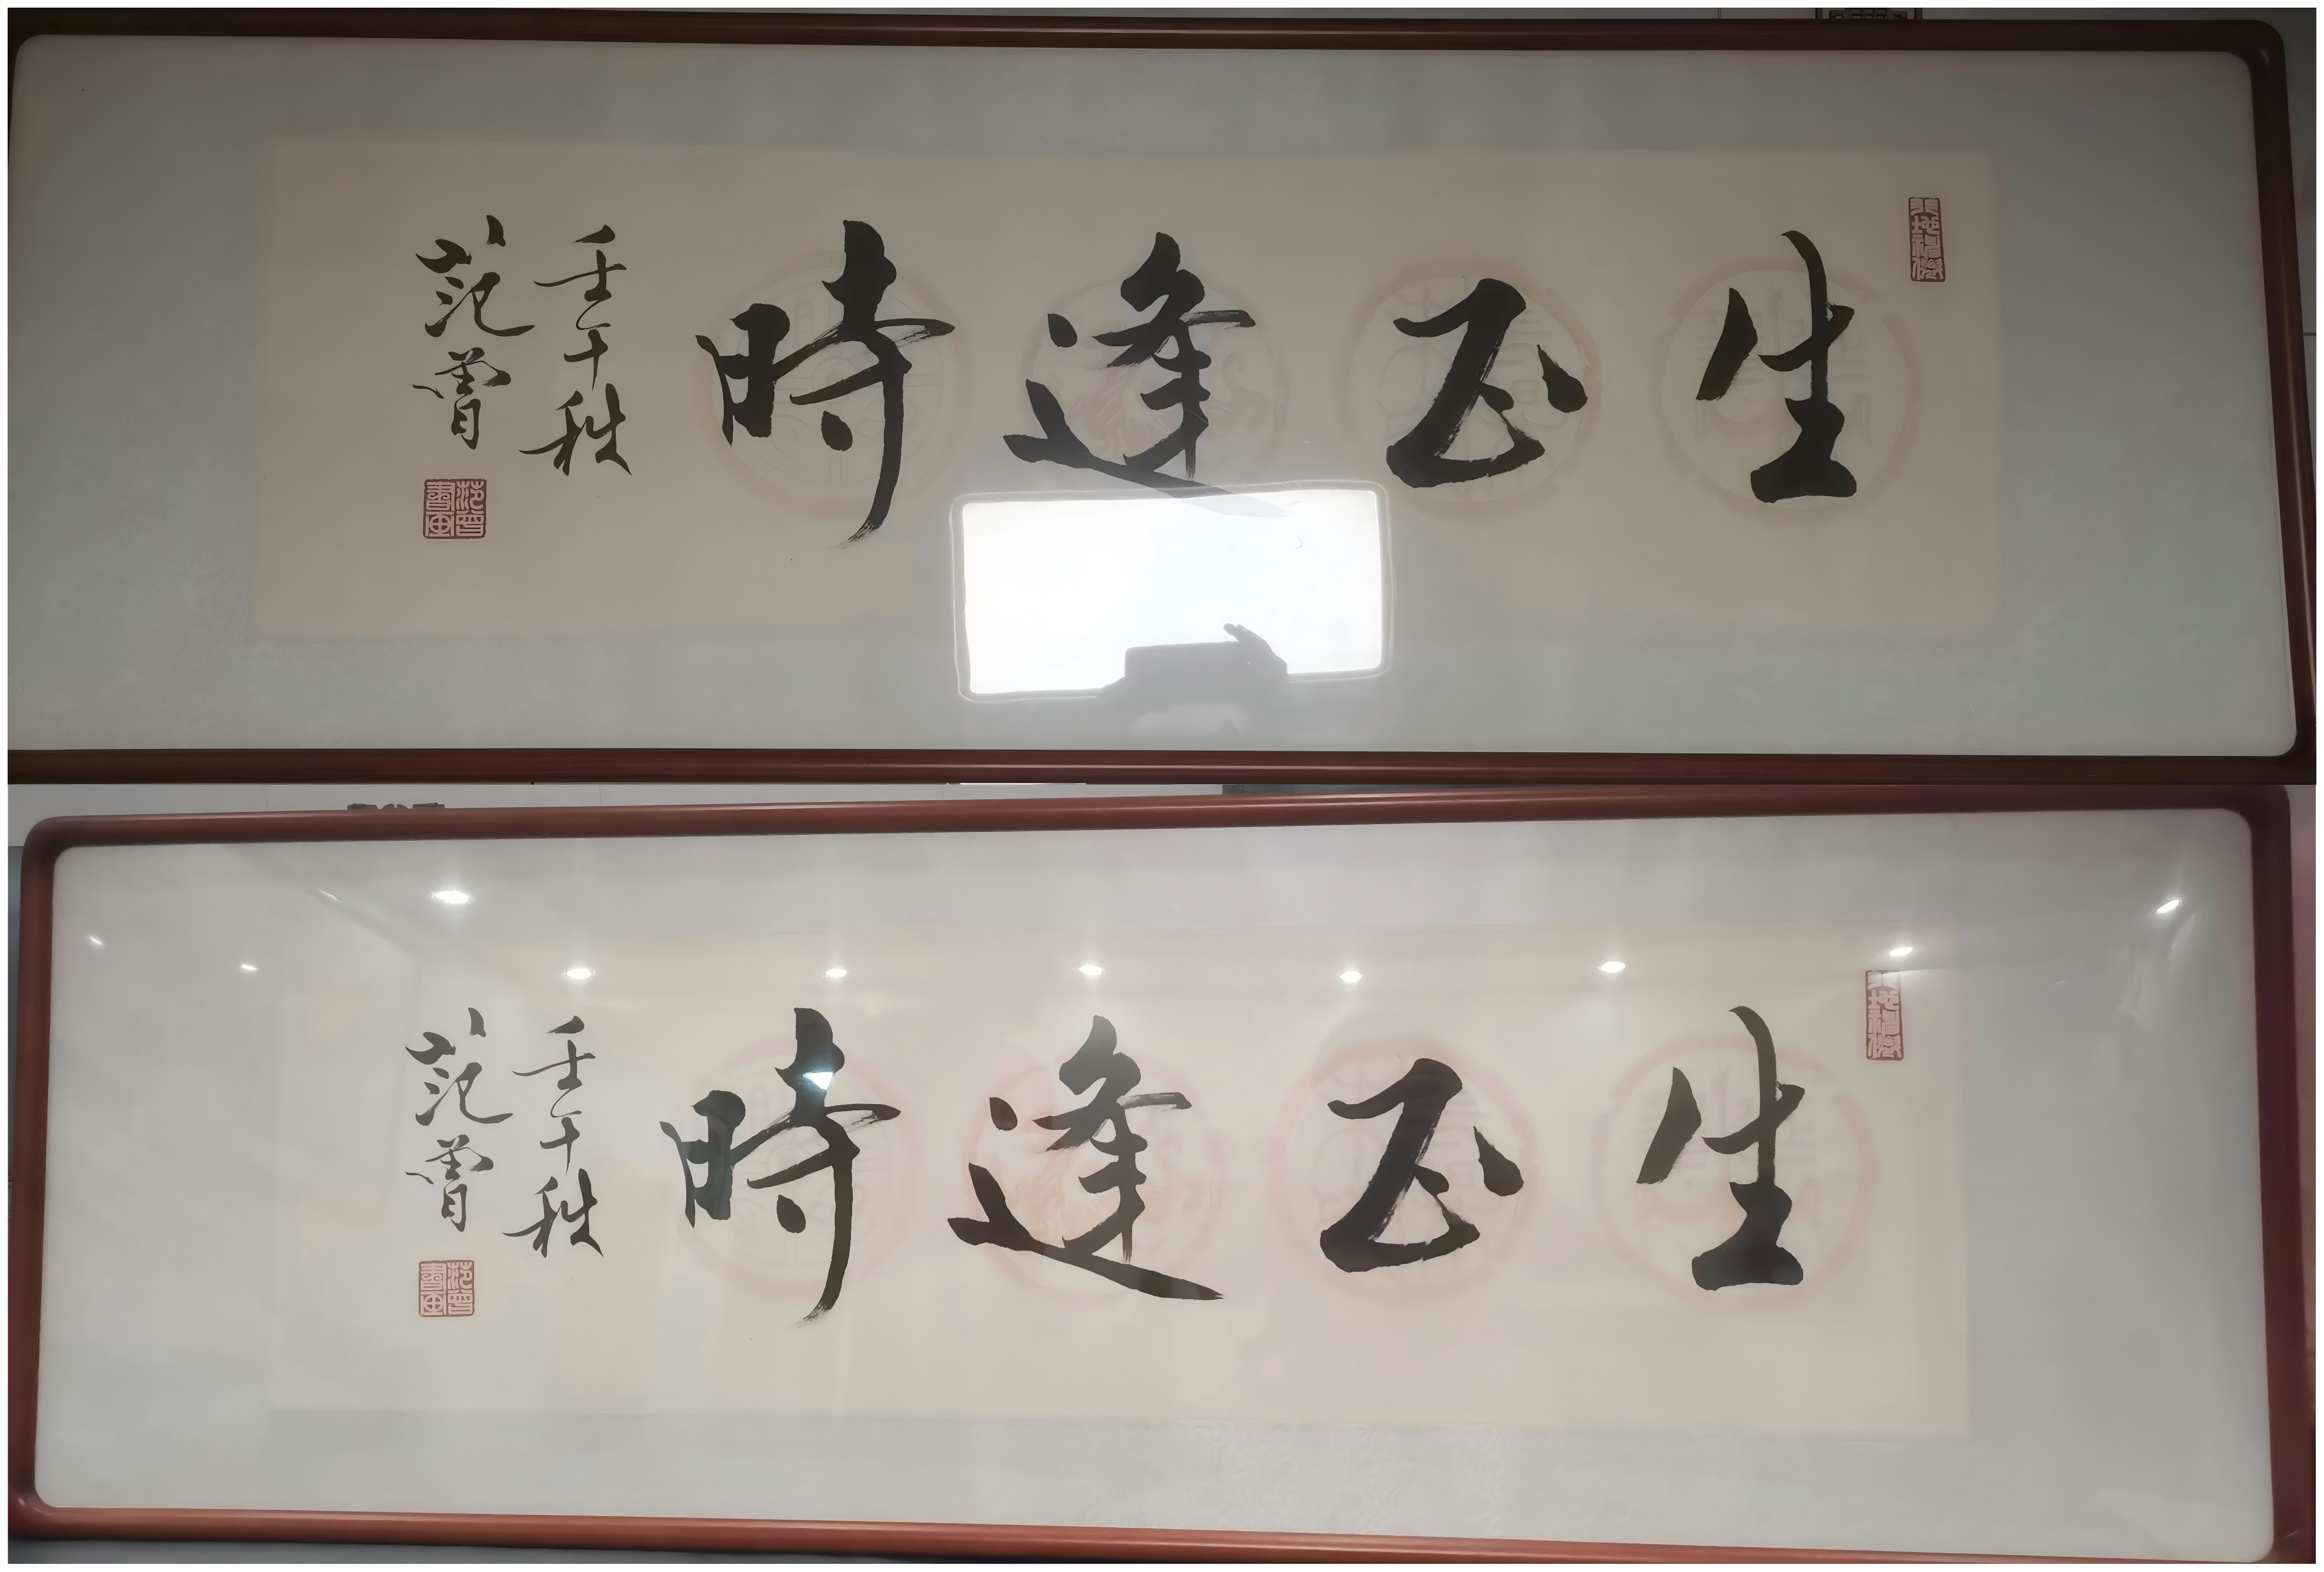 生正逢時
壬午秋
范曾
范曾
書畫
生正逢時
壬午秋
范曾
范曾
書畫